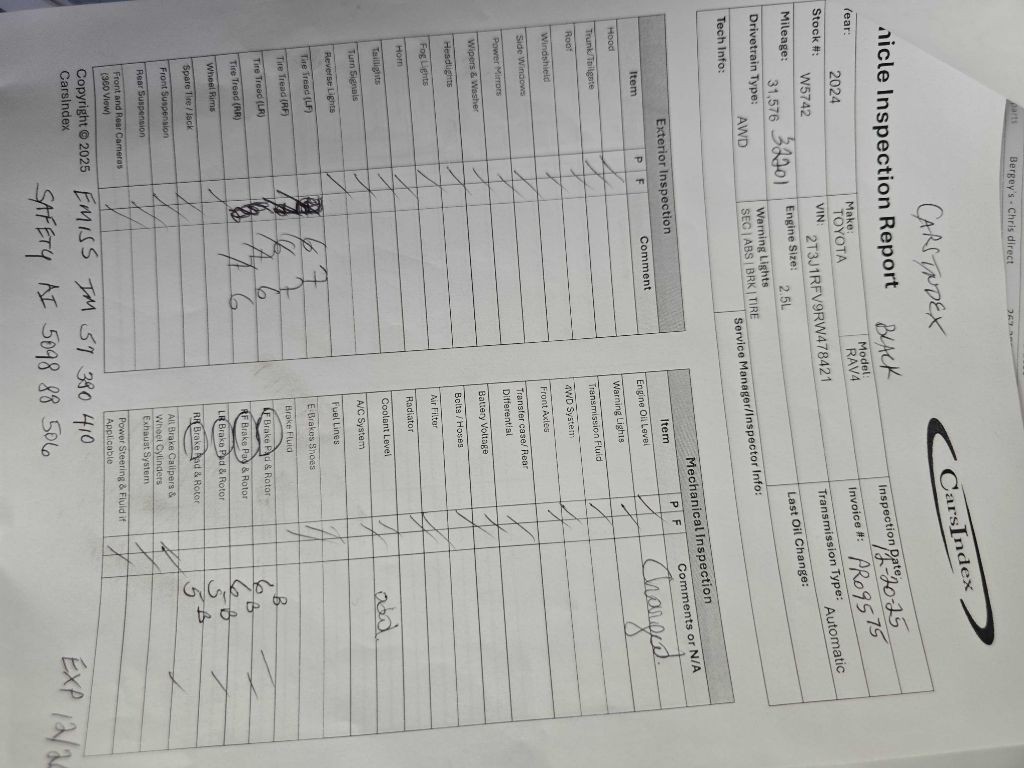 Bergey's - Chris direct
CARSINDEX
CarsIndex
hicle Inspection Report BLACK
Inspection Date: 12-2025
Year: 2024
Make: TOYOTA
Model: RAV4
Invoice #: PRO9575
Stock #: W5742
VIN: 2T3J1RFV9RW478421
Transmission Type: Automatic
Mileage: 31,576 32201
Engine Size: 2.5L
Last Oil Change:
Drivetrain Type: AWD
Warning Lights
SEC | ABS | BRK | TIRE
Tech Info:
Service Manager/Inspector Info:
Exterior Inspection
Item P F Comment
Hood
Trunk/Tailgate
Roof
Windshield
Side Windows
Power Mirrors
Wipers & Washer
Headlights
Fog Lights
Horn
Taillights
Turn Signals
Reverse Lights
Tire Tread (LF) 6 7
Tire Tread (RF) 7
Tire Tread (LR) 6
Tire Tread (RR) 6
Wheel Rims
Spare Tire / Jack
Front Suspension
Rear Suspension
Front and Rear Cameras
(360 View)
Mechanical Inspection
Item P F Comments or N/A
Engine Oil Level Changed
Warning Lights
Transmission Fluid
4WD System
Front Axles
Transfer case/ Rear
Differential
Battery Voltage
Belts / Hoses
Air Filter
Radiator
Coolant Level add
A/C System
Fuel Lines
E-Brakes Shoes
Brake Fluid
LF Brake Pad & Rotor 6-B
RF Brake Pad & Rotor 6 B
LR Brake Pad & Rotor 5-B
RR Brake Pad & Rotor 5-B
All Brake Calipers &
Wheel Cylinders
Exhaust System
Power Steering & Fluid if
Applicable
Copyright © 2025
CarsIndex
EMISS IM 57 390 410
SAFETY AI 5098 88 506
EXP 12/2